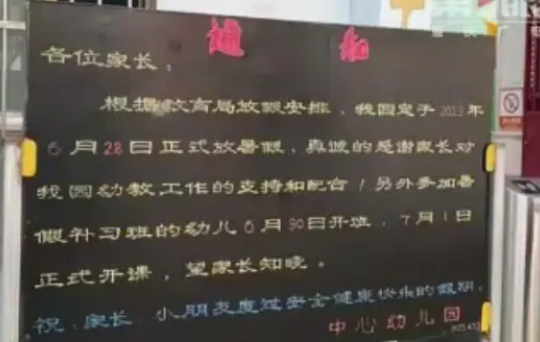 通知
各位家长：
根据教育局放假安排，我园定于2013年
6月28日正式放暑假，真诚的感谢家长对
我园幼教工作的支持和配合！另外参加暑
假补习班的幼儿6月30日开班，7月1日
正式开课，望家长知晓。
祝：家长、小朋友度过安全健康快乐的假期
中心幼儿园